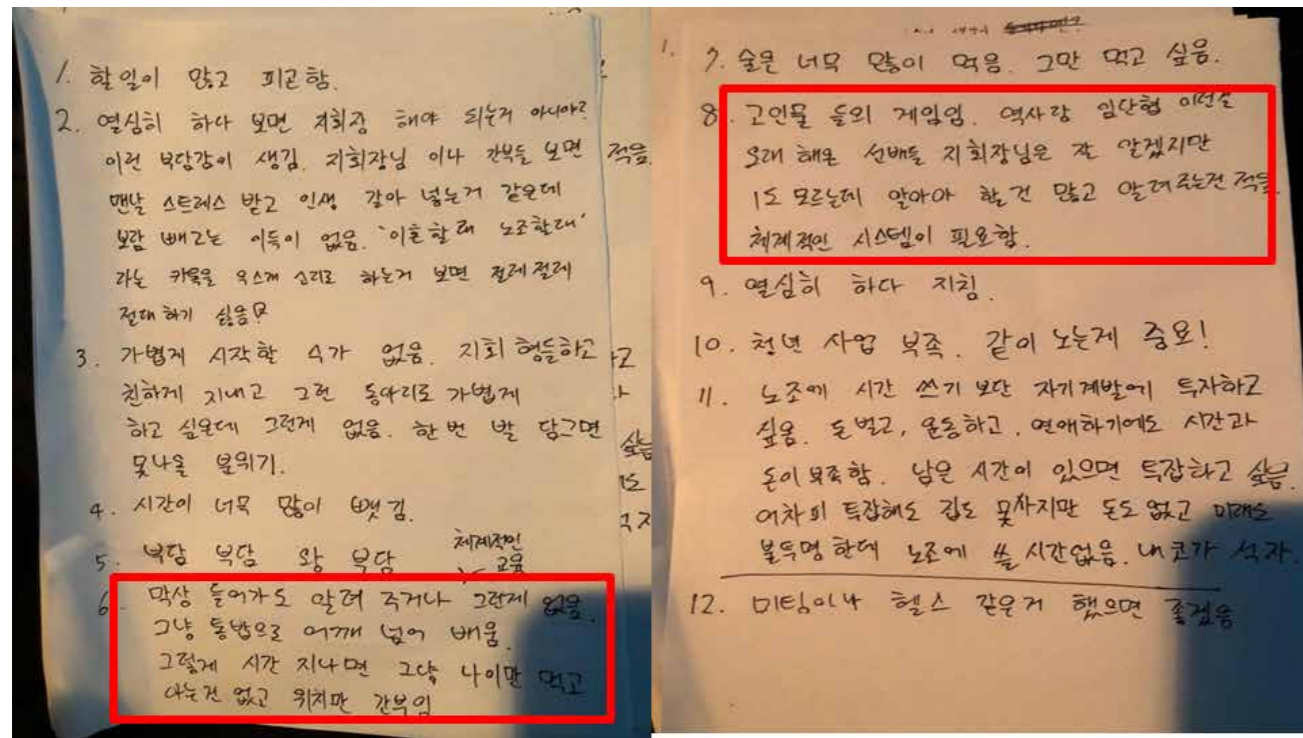 1. 할일이 많고 피곤함.
2. 열심히 하다 보면 지회장 해야 되는거 아니야?
이런 부담감이 생김. 지회장님 이나 간부들 보면
맨날 스트레스 받고 인생 갈아 넣는거 같은데
보람 빼고는 이득이 없음. '이혼할래 노조할래'
라는 우스개 소리로 하는거 보면 절레절레
절대 하기 싫음
3. 가볍게 시작할 수가 없음. 지회 형들하고
친하게 지내고 그런 동아리도 가볍게
하고 싶은데 그런게 없음. 한번 발 담그면
못나올 분위기.
4. 시간이 너무 많이 뺏김.
5. 부담 부담 왕 부담
체계적인
교육
6. 막상 들어가도 알려 주거나 그런게 없음.
그냥 통밥으로 어깨 넘어 배움.
그렇게 시간 지나면 그냥 나이만 먹고
아는건 없고 위치만 간부임
적음.
7. 술을 너무 많이 먹음. 그만 먹고 싶음.
8. 고인물 들의 게임임. 역사랑 임단협 이런걸
오래 해온 선배들 지회장님은 잘 알겠지만
1도 모르는데 알아야 할건 많고 알려주는건 적음.
체계적인 시스템이 필요함.
9. 열심히 하다 지침.
10. 청년 사업 부족. 같이 노는게 중요!
11. 노조에 시간 쓰기 보단 자기계발에 투자하고
싶음. 돈벌고, 운동하고, 연애하기에도 시간과
돈이 부족함. 남은 시간이 있으면 투잡하고 싶음.
어차피 투잡해도 집도 못사지만 돈도 없고 미래도
불투명 한데 노조에 쓸 시간없음. 내 코가 석자.
12. 미팅이나 헬스 같은거 했으면 좋겠음